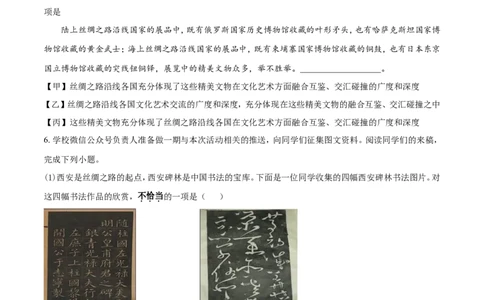 项是
陆上丝绸之路沿线国家的展品中，既有俄罗斯国家历史博物馆收藏的叶形矛头，也有哈萨克斯坦国家博
物馆收藏的黄金武士；海上丝绸之路沿线国家的展品中，既有柬埔寨国家博物馆收藏的铜鼓，也有日本东京
国立博物馆收藏的突线钮铜铎，展览中的精美文物众多，举不胜举。____________________。
【甲】丝绸之路沿线各国充分体现了这些精美文物在文化艺术方面融合互鉴、交汇碰撞的广度和深度
【乙】丝绸之路沿线各国文化艺术交流的广度和深度，充分体现在这些精美文物的融合互鉴、交汇碰撞之中
【丙】这些精美文物充分体现了丝绸之路沿线各国在文化艺术方面融合互鉴、交汇碰撞的广度和深度
6. 学校微信公众号负责人准备做一期与本次活动相关的推送，向同学们征集图文资料。阅读同学们的来稿，
完成下列小题。
(1) 西安是丝绸之路的起点，西安碑林是中国书法的宝库。下面是一位同学收集的四幅西安碑林书法图片。对
这四幅书法作品的欣赏，不恰当的一项是（ ）
随柱国左光禄大夫
明公皇甫府君之
銀青光禄大夫行
左庶子上柱國
開國公于志寧製